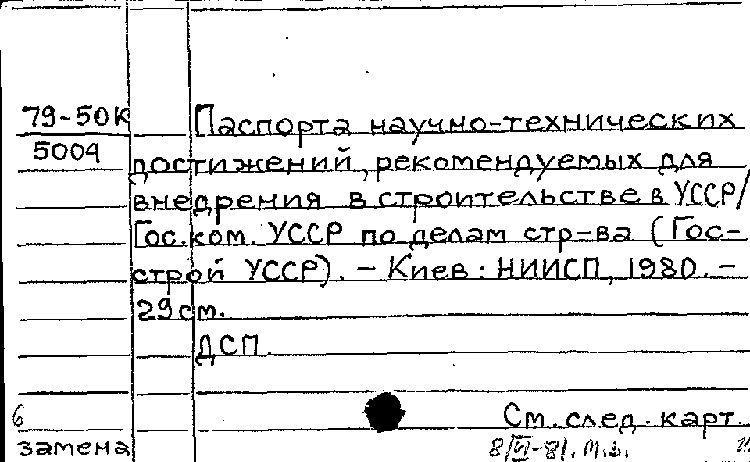 79-50К Паспорта научно-технических
5004 достижений, рекомендуемых для
внедрения в строительстве в УССР/
Гос.ком. УССР по делам стр-ва (Гос-
строй УССР). – Киев : НИИСП, 1980. –
29 см.
ДСП.
6 См. след. карт.
замена 8/VI-81.